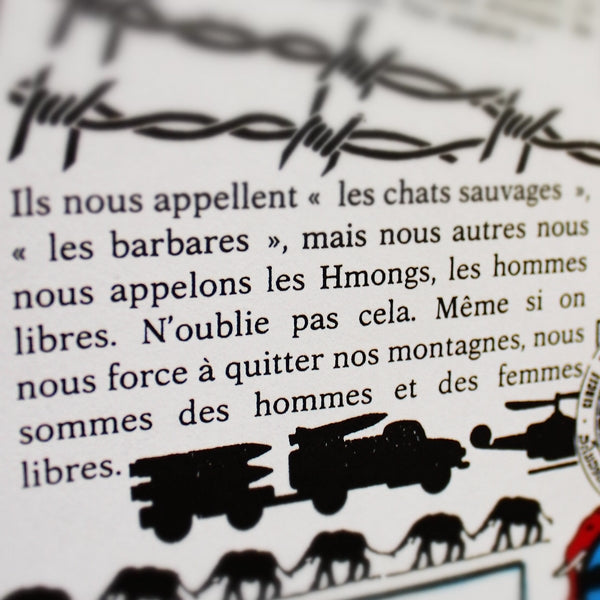 Ils nous appellent « les chats sauvages »,
« les barbares », mais nous autres nous
nous appelons les Hmongs, les hommes
libres. N'oublie pas cela. Même si on
nous force à quitter nos montagnes, nous
sommes des hommes et des femmes
libres.